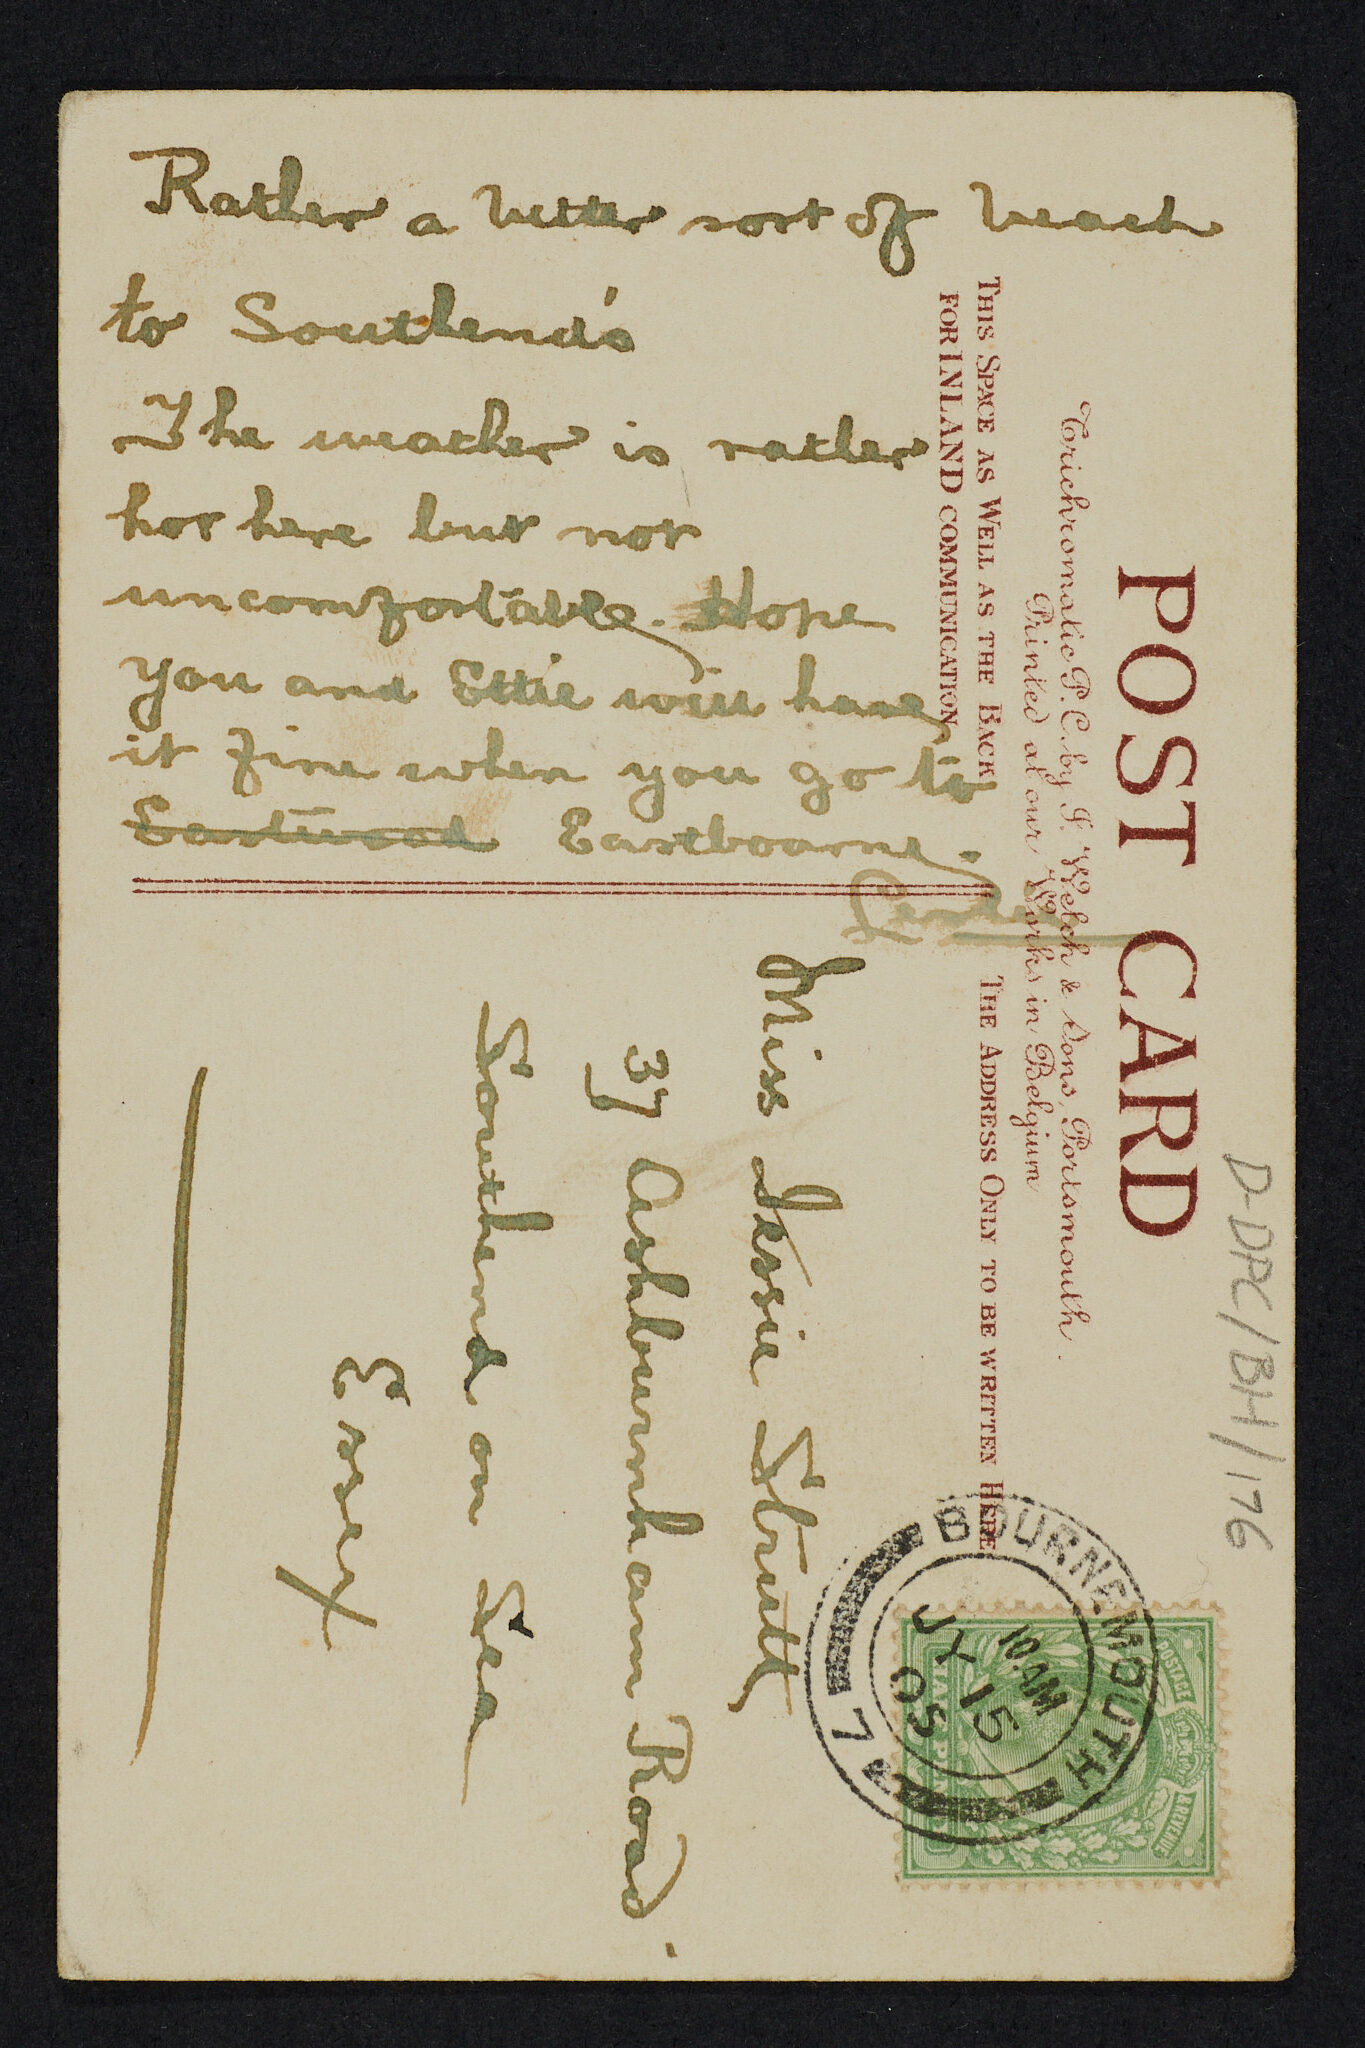 Rather a better sort of beach
to Southend's
The weather is rather
hot here but not
uncomfortable. Hope
you and Ettie will have
it fine when you go to
Eastwood Eastbourne.
POST CARD
Trichromatic P.C. by J. Welch & Sons, Portsmouth.
Printed at our Works in Belgium
THIS SPACE AS WELL AS THE BACK
FOR INLAND COMMUNICATION
THE ADDRESS ONLY TO BE WRITTEN HERE
Miss Jessie Strutt
37 Ashburnham Road.
Southend on Sea
Essex
BOURNEMOUTH
10.AM
JY 15
05
7
POSTAGE
& REVENUE
HALFPENNY
D-DPC/BH/176